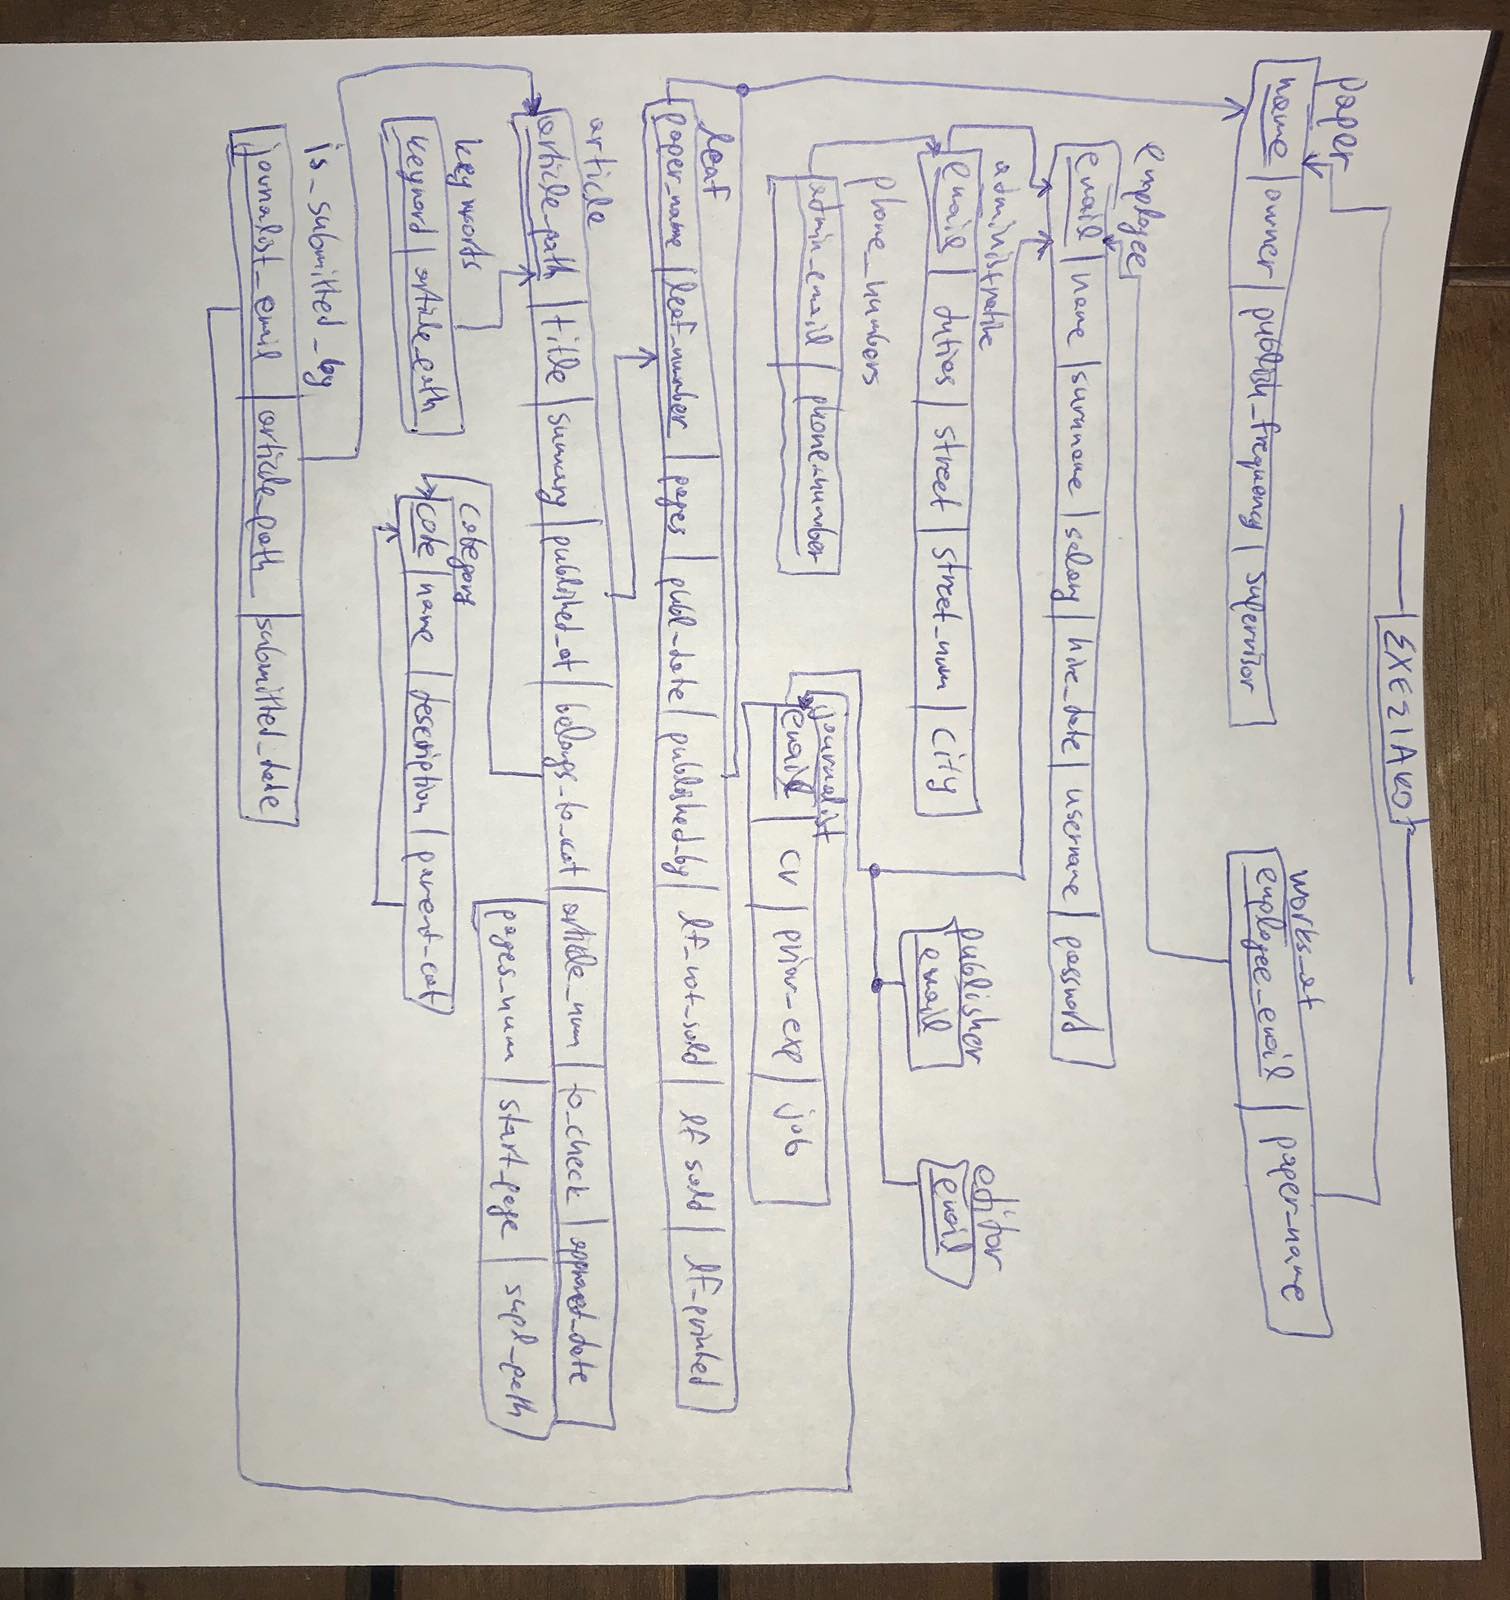 ΣΧΕΣΙΑΚΟ
paper
name | owner | publish_frequency | supervisor
works_at
employee_email | paper_name
employee
email | name | surname | salary | hire_date | username | password
administrative
email | duties | street | street_num | city
publisher
email
editor
email
phone_numbers
admin_email | phone_number
journalist
email | cv | prior_exp | job
leaf
paper_name | leaf_number | pages | publ-date | published_by | lf_not_sold | lf sold | lf_printed
article
article_path | title | summary | published_at | belongs_to_cat | article_num | to_check | approved_date
pages_num | start_page | supl_path
keywords
keyword | article_path
category
code | name | description | parent_cat
is_submitted_by
journalist_email | article_path | submitted_date